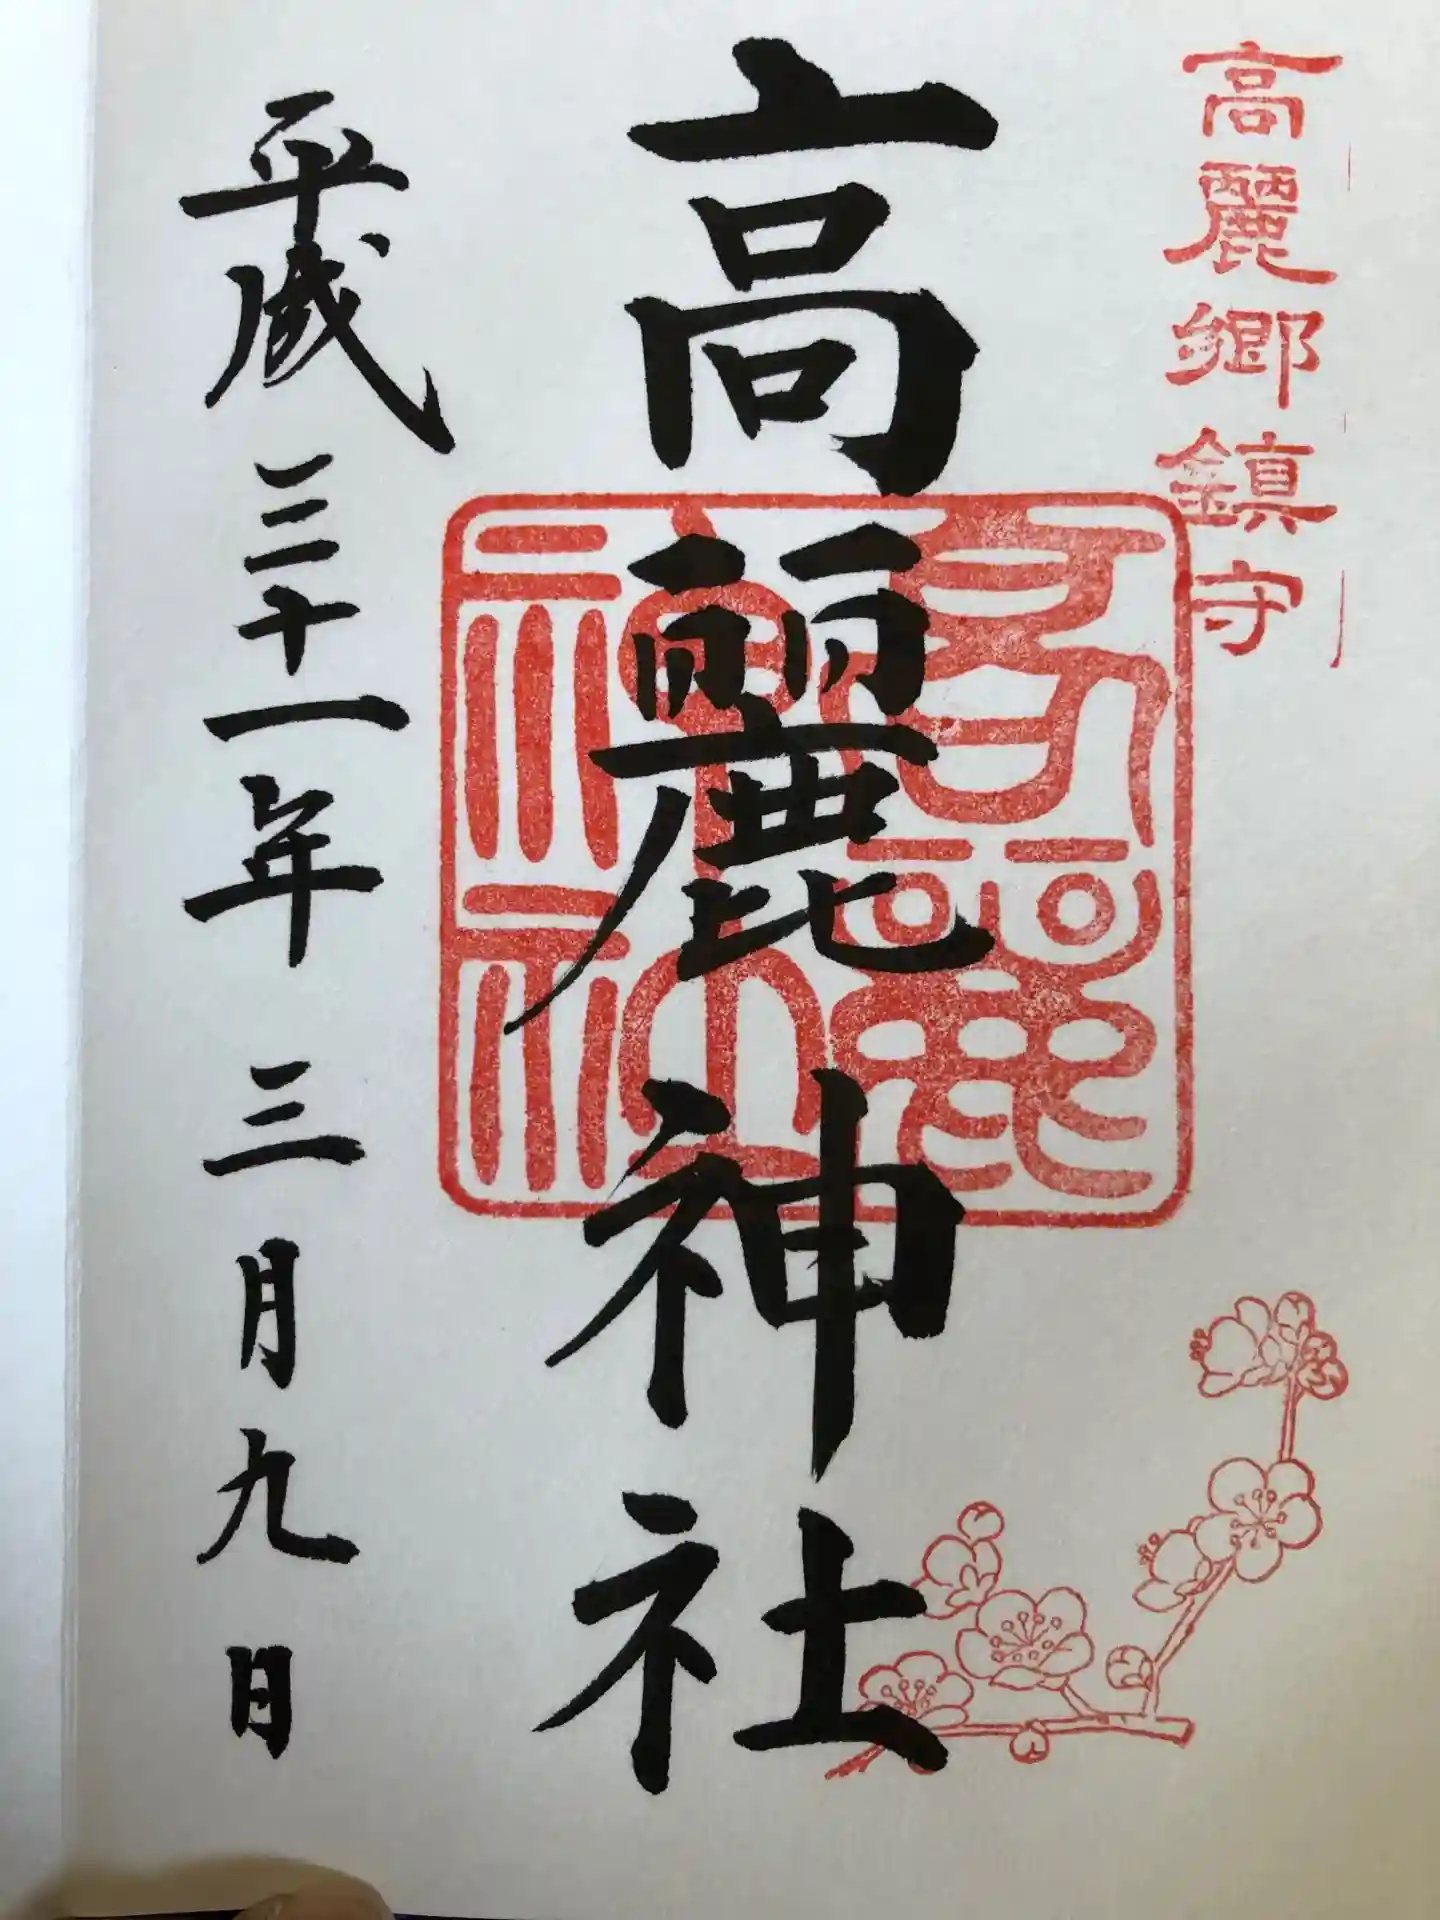 高麗郷鎮守
高麗神社
高麗神社
平成三十一年三月九日